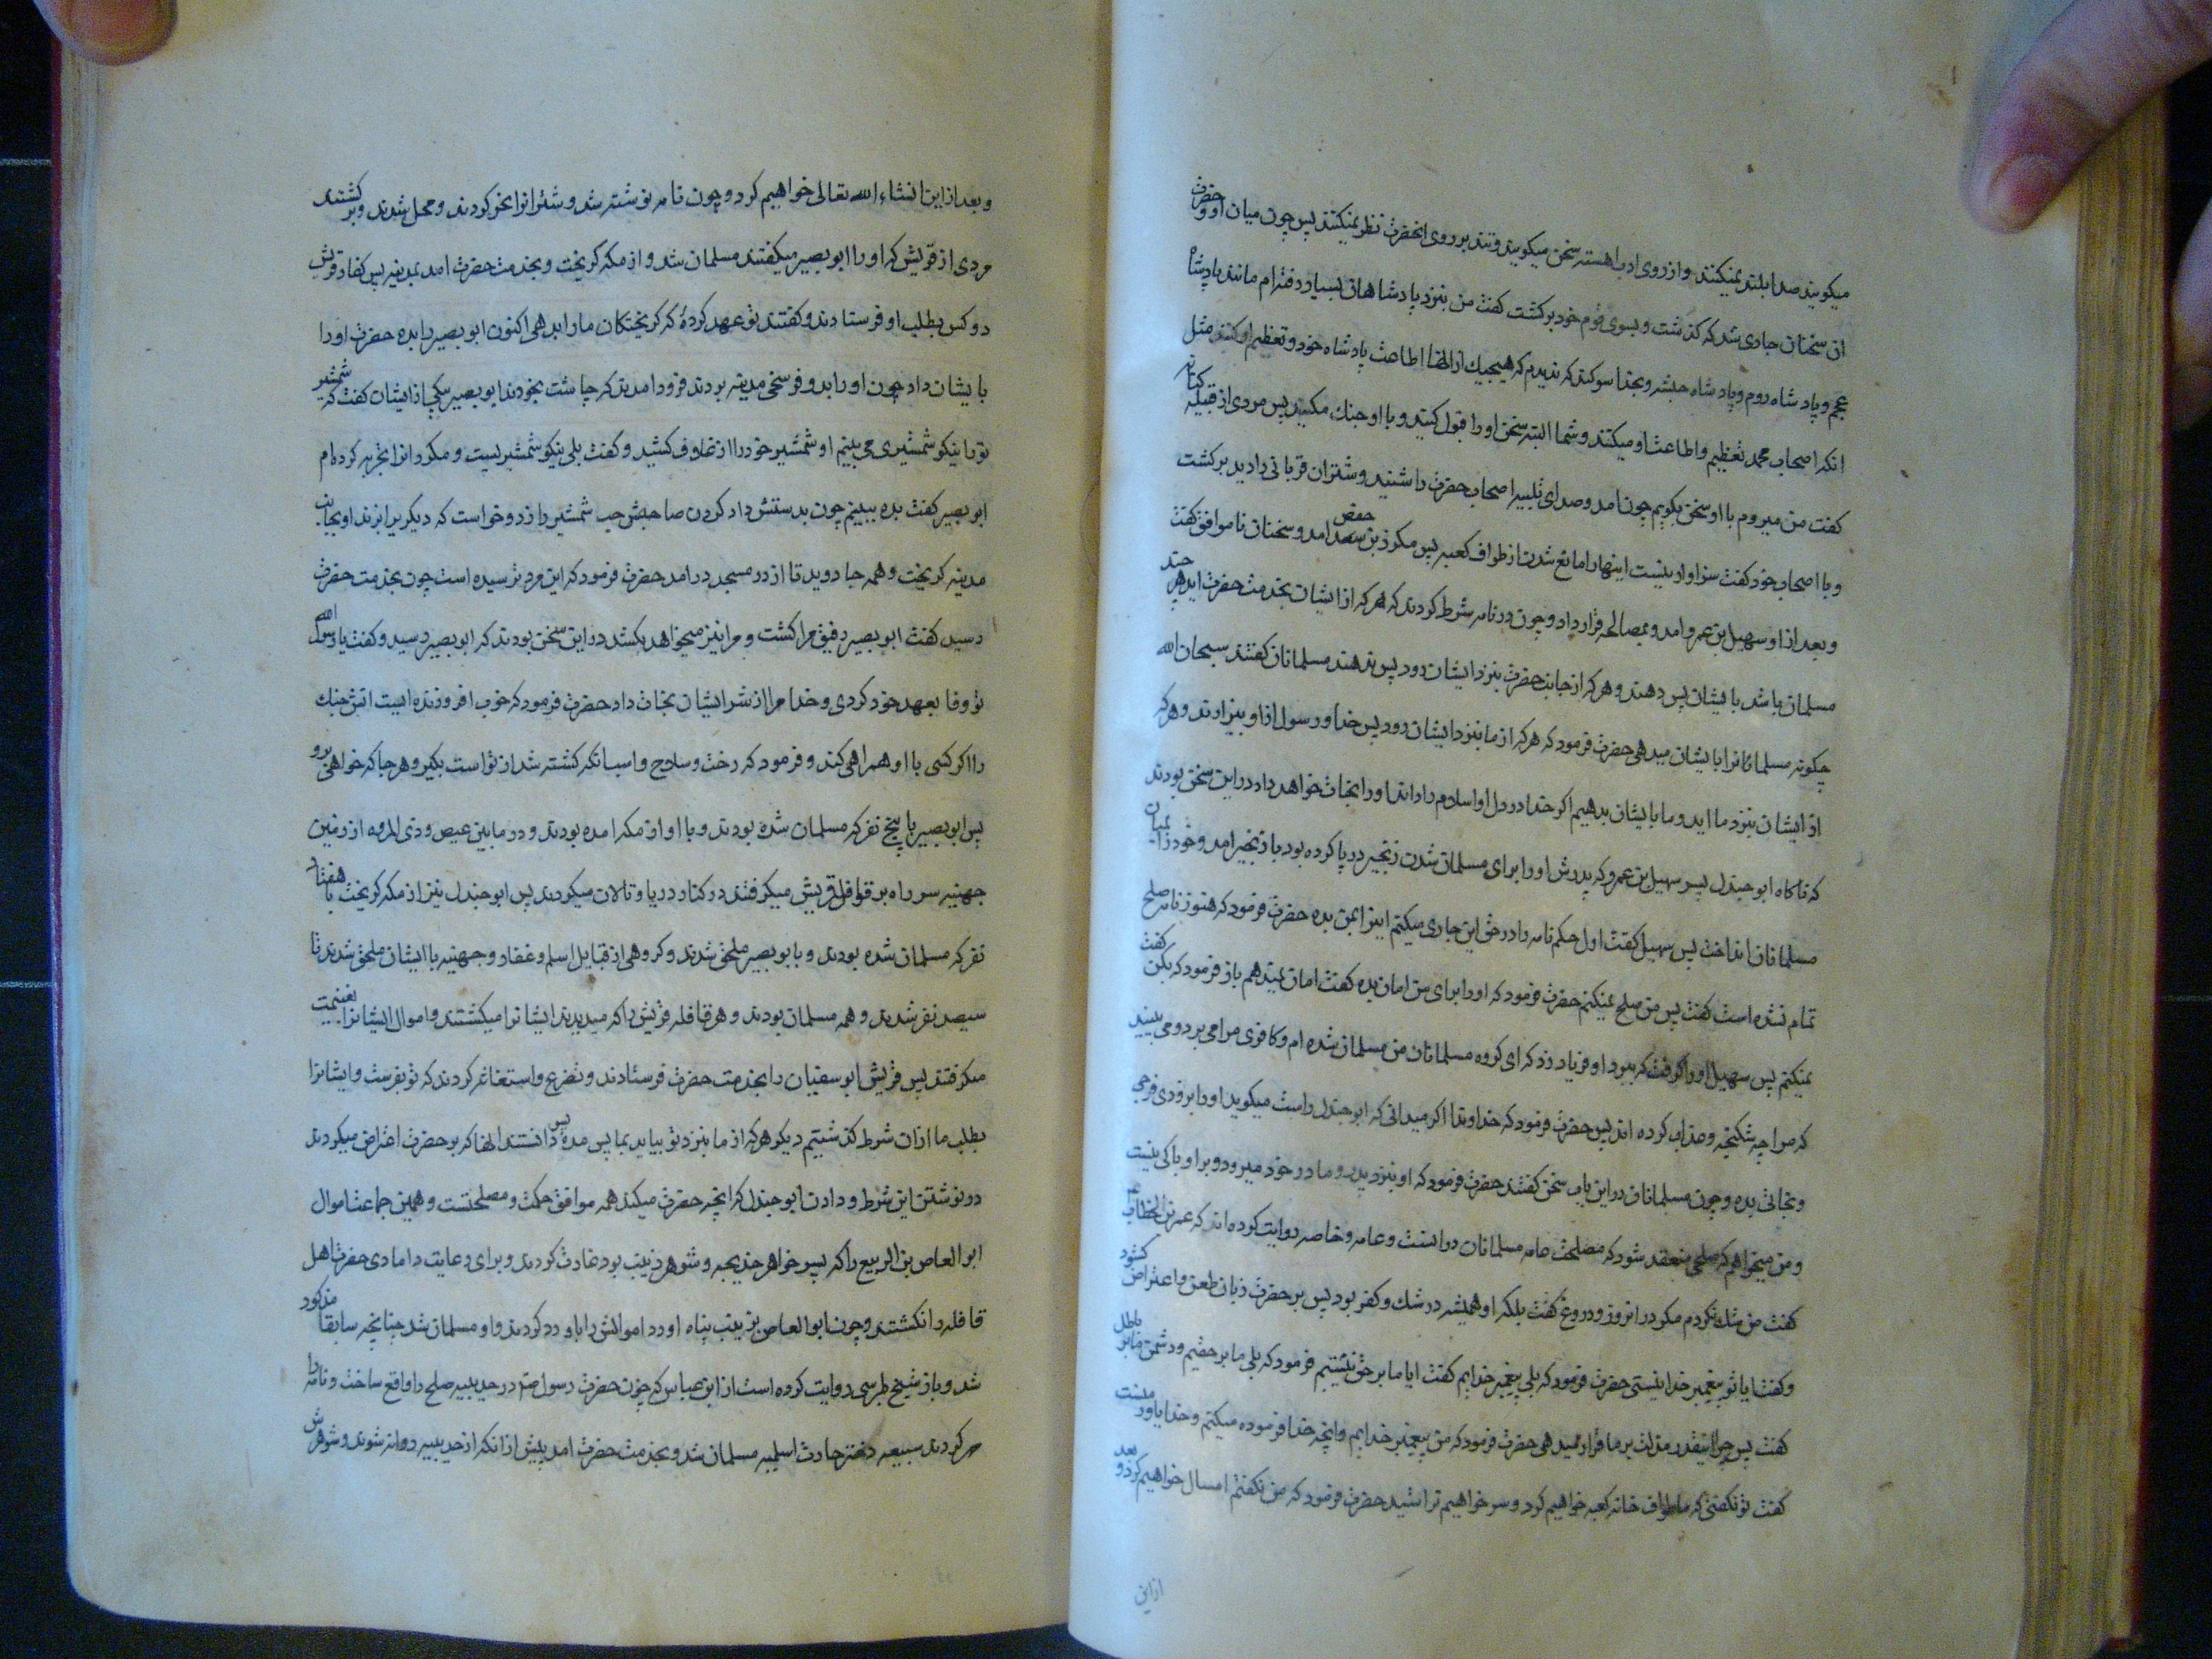 میکویند صدا بلند نمیکنند و از روی ادب اهسته سخن میکویند و تند بر روی انحضرت نظر نمیکنند پس چون میان او و حضرت
ان سخنان جاری شد که کذشت و بسوی قوم خود برکشت کفت من بنزد پادشاهان بسیار رفته ام مانند پادشاه
عجم و پادشاه روم و پادشاه حبشه و بخدا سوکند که ندیدم که هیچیك از انها اطاعت پادشاه خود و تعظیم او کنند مثل
انکه اصحاب محمد تعظیم و اطاعت او میکنند و شما البته سخن او را قبول کنید و با او جنك مکنید پس مردی از قبیله کنانه
کفت من میروم با او سخن بکویم چون امد و صدای تلبیه اصحاب حضرت را شنید و شتران قربانی را دید برکشت
و با اصحاب خود کفت سزاوار نیست اینها را مانع شدن از طواف کعبه پس مکرز بن حفص امد و سخنان ناموافق کفت
و بعد از او سهیل بن عمرو امد و بمصالحه قرار داد و چون در نامه شرط کردند که هر که از ایشان بخدمت حضرت اید هر چند
مسلمان باشد بایشان پس دهند و هر که از جانب حضرت بنزد ایشان رود پس ندهند مسلمانان کفتند سبحان الله
چکونه مسلمانانرا بایشان میدهی حضرت فرمود که هر که از ما بنزد ایشان رود پس خدا و رسول از او بیزارند و هر که
از ایشان بنزد ما اید و ما بایشان بدهیم اکر خدا در دل او اسلام را داند او را نجات خواهد داد در این سخن بودند
که ناکاه ابو جندل پسر سهیل بن عمرو که پدرش او را برای مسلمان شدن زنجیر در پا کرده بود با زنجیر امد و خود را بمیان
مسلمانان انداخت پس سهیل کفت اول حکم نامه را در حق این جاری میکنم اینرا بمن بده حضرت فرمود که هنوز نامه صلح
تمام نشده است کفت پس من صلح نمیکنم حضرت فرمود که او را برای من امان بده کفت امان نمیدهم باز فرمود که بکن کفت
نمیکنم پس سهیل او را کرفت که ببرد او فریاد زد که ای کروه مسلمانان من مسلمان شده ام و کافری مرا می برد و می بینید
که مرا چه شکنجه و عذاب کرده اند پس حضرت فرمود که خداوندا اکر میدانی که ابو جندل راست میکوید او را بزودی فرجی
و نجاتی بده و چون مسلمانان در این باب سخن کفتند حضرت فرمود که او بنزد پدر و مادر خود میرود و بر او باکی نیست
و من میخواهم که صلحی منعقد شود که مصلحت عامه مسلمانان در انست و عامه و خاصه روایت کرده اند که عمر بن الخطاب
کفت من شك نکردم مکر در انروز و دروغ کفت بلکه او همیشه در شك و کفر بود پس بر حضرت زبان طعن و اعتراض کشود
و کفت ایا تو پیغمبر خدا نیستی حضرت فرمود که بلی پیغمبر خدایم کفت ایا ما بر حق نیستیم فرمود که بلی ما بر حقیم و دشمن ما بر باطل
کفت پس چرا اینقدر مذلت بر ما قرار میدهی حضرت فرمود که من پیغمبر خدایم و انچه خدا فرموده میکنم و خدا یاور منست
کفت تو نکفتی که ما طواف خانه کعبه خواهیم کرد و سر خواهیم تراشید حضرت فرمود که من نکفتم امسال خواهیم کرد و بعد
از این
و بعد از این انشاء الله تعالی خواهیم کرد و چون نامه نوشته شد و شترانرا نحر کردند و محل شدند و برکشتند
مردی از قریش که او را ابو بصیر میکفتند مسلمان شد و از مکه کریخت و بخدمت حضرت امد بمدینه پس کفار قریش
دو کس بطلب او فرستادند و کفتند تو عهد کردۀ که کریختکان ما را بدهی اکنون ابو بصیر را بده حضرت او را
بایشان داد چون او را بدو فرسخی مدینه بردند فرود امدند که چاشت بخورند ابو بصیر بیکی از ایشان کفت که شمشیر
تو را نیکو شمشیری می بینم او شمشیر خود را از غلاف کشید و کفت بلی نیکو شمشیریست و مکرر انرا تجربه کرده ام
ابو بصیر کفت بده ببینم چون بدستش داد کردن صاحبش شمشیر را زد و خواست که دیکریرا بزند او بجانب
مدینه کریخت و همه جا دوید تا از در مسجد درامد حضرت فرمود که این مرد ترسیده است چون بخدمت حضرت
رسید کفت ابو بصیر رفیق مرا کشت و مرا نیز میخواهد بکشد در این سخن بودند که ابو بصیر رسید و کفت یا رسول الله
تو وفا بعهد خود کردی و خدا مرا از شر ایشان نجات داد حضرت فرمود که خوب افروزنده ایست اتش جنك
را اکر کسی با او همراهی کند و فرمود که رخت و سلاح و اسب انکه کشته شد از تو است بکیر و هر جا که خواهی برو
پس ابو بصیر با پنج نفر که مسلمان شده بودند و با او از مکه امده بودند و در مابین عیص و ذی المروه از زمین
جهنیه سر راه بر قوافل قریش میکرفتند در کنار دریا و تالان میکردند پس ابو جندل نیز از مکه کریخت با هفتاد
نفر که مسلمان شده بودند و بابو بصیر ملحق شدند و کروهی از قبایل اسلم و غفار و جهنیه با ایشان ملحق شدند تا
سیصد نفر شدند و همه مسلمان بودند و هر قافله قریش را که میدیدند ایشانرا میکشتند و اموال ایشانرا بغنیمت
میکرفتند پس قریش ابو سفیان را بخدمت حضرت فرستادند و تضرع و استغاثه کردند که تو بفرست و ایشانرا
بطلب ما از ان شرط کذشتیم دیکر هر که از ما بنزد تو بیاید بما پس مده پس دانستند انها که بر حضرت اعتراض میکردند
در نوشتن این شرط و دادن ابو جندل که انچه حضرت میکند همه موافق حکمت و مصلحتست و همین جماعت اموال
ابو العاص بن الربیع را که پسر خواهر خدیجه و شوهر زینب بود غارت کردند و برای رعایت دامادی حضرت اهل
قافله را نکشتند و چون ابو العاص بزینب پناه اورد اموالش را باو رد کردند و او مسلمان شد چنانچه سابقا مذکور
شد و باز شیخ طبرسی روایت کرده است از ابن عباس که چون حضرت رسول در حدیبیه صلح را واقع ساخت و نامه را
مهر کردند سبیعه دختر حارث اسلمیه مسلمان شد و بخدمت حضرت امد پیش از انکه از حدیبیه روانه شوند و شوهرش